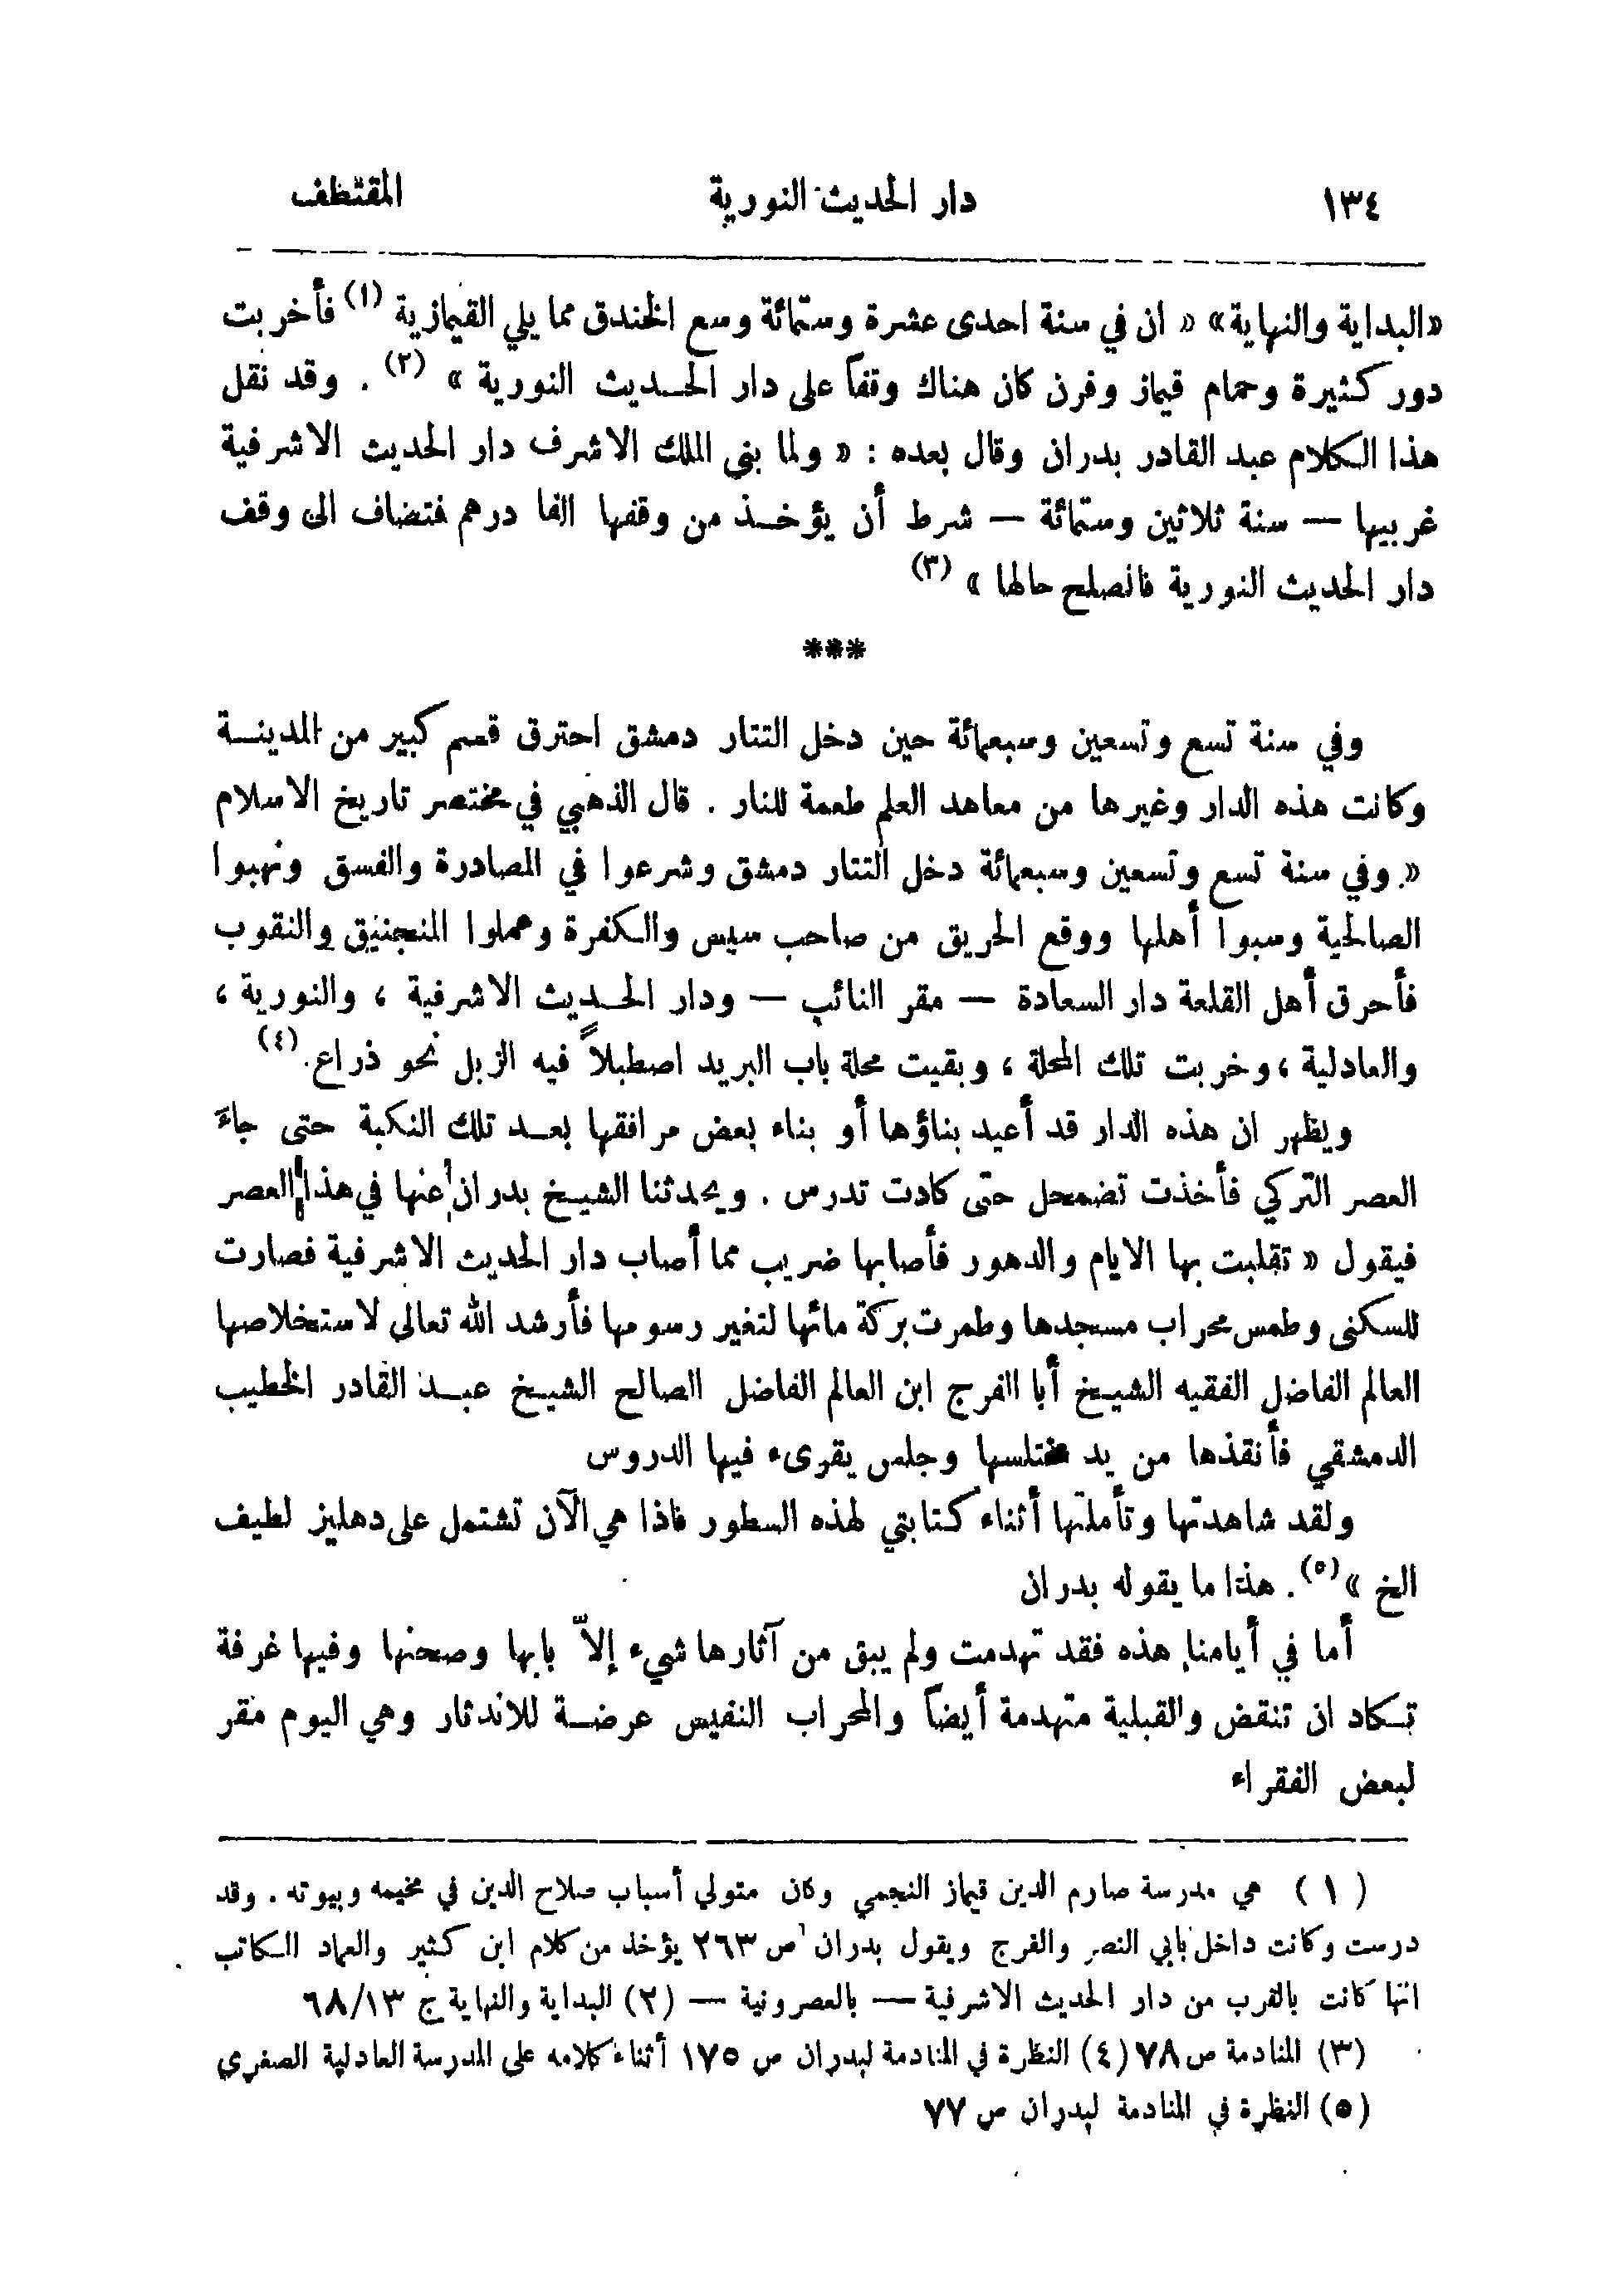 ١٣٤ دار الحديث النورية المقتطف
«البداية والنهاية» « ان في سنة احدى عشرة وستمائة وسع الخندق مما يلي القيمازية (١) فأخربت
دور كثيرة وحمام قيماز وفرن كان هناك وقفاً على دار الحديث النورية » (٢) . وقد نقل
هذا الكلام عبد القادر بدران وقال بعده : « ولما بنى الملك الاشرف دار الحديث الاشرفية
غربيها — سنة ثلاثين وستمائة — شرط أن يؤخذ من وقفها الفا درهم فتضاف الى وقف
دار الحديث النورية فانصلح حالها » (٣)
***
وفي سنة تسع وتسعين وسبعمائة حين دخل التتار دمشق احترق قسم كبير من المدينة
وكانت هذه الدار وغيرها من معاهد العلم طعمة للنار . قال الذهبي في مختصر تاريخ الاسلام
« وفي سنة تسع وتسعين وسبعمائة دخل التتار دمشق وشرعوا في المصادرة والفسق ونهبوا
الصالحية وسبوا أهلها ووقع الحريق من صاحب سيس والكفرة وعملوا المنجنيق والنقوب
فأحرق أهل القلعة دار السعادة — مقر النائب — ودار الحديث الاشرفية ، والنورية ،
والعادلية ، وخربت تلك المحلة ، وبقيت محلة باب البريد اصطبلاً فيه الزبل نحو ذراع . (٤)
ويظهر ان هذه الدار قد أعيد بناؤها أو بناء بعض مرافقها بعد تلك النكبة حتى جاء
العصر التركي فأخذت تضمحل حتى كادت تدرس . ويحدثنا الشيخ بدران عنها في هذا العصر
فيقول « تقلبت بها الايام والدهور فأصابها ضريب مما أصاب دار الحديث الاشرفية فصارت
للسكنى وطمس محراب مسجدها وطمرت بركة مائها لتغير رسومها فأرشد الله تعالى لاستخلاصها
العالم الفاضل الفقيه الشيخ أبا الفرج ابن العالم الفاضل الصالح الشيخ عبد القادر الخطيب
الدمشقي فأنقذها من يد مختلسها وجلس يقرىء فيها الدروس
ولقد شاهدتها وتأملتها أثناء كتابتي لهذه السطور فاذا هي الآن تشتمل على دهليز لطيف
الخ » (٥) . هذا ما يقوله بدران
أما في أيامنا هذه فقد تهدمت ولم يبق من آثارها شيء إلاّ بابها وصحنها وفيها غرفة
تكاد ان تنقض والقبلية متهدمة أيضاً والمحراب النفيس عرضة للاندثار وهي اليوم مقر
لبعض الفقراء
(١) هي مدرسة صارم الدين قيماز النجمي وكان متولي أسباب صلاح الدين في مخيمه وبيوته . وقد
درست وكانت داخل بابي النصر والفرج ويقول بدران ص ٢٦٣ يؤخذ من كلام ابن كثير والعماد الكاتب
انها كانت بالقرب من دار الحديث الاشرفية — بالعصرونية — (٢) البداية والنهاية ج ٦٨/١٣
(٣) المنادمة ص ٧٨ (٤) النظرة في المنادمة لبدران ص ١٧٥ أثناء كلامه على المدرسة العادلية الصغرى
(٥) النظرة في المنادمة لبدران ص ٧٧